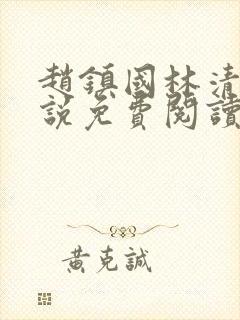 趙鎮國林清
說免費閱讀
黃克誠